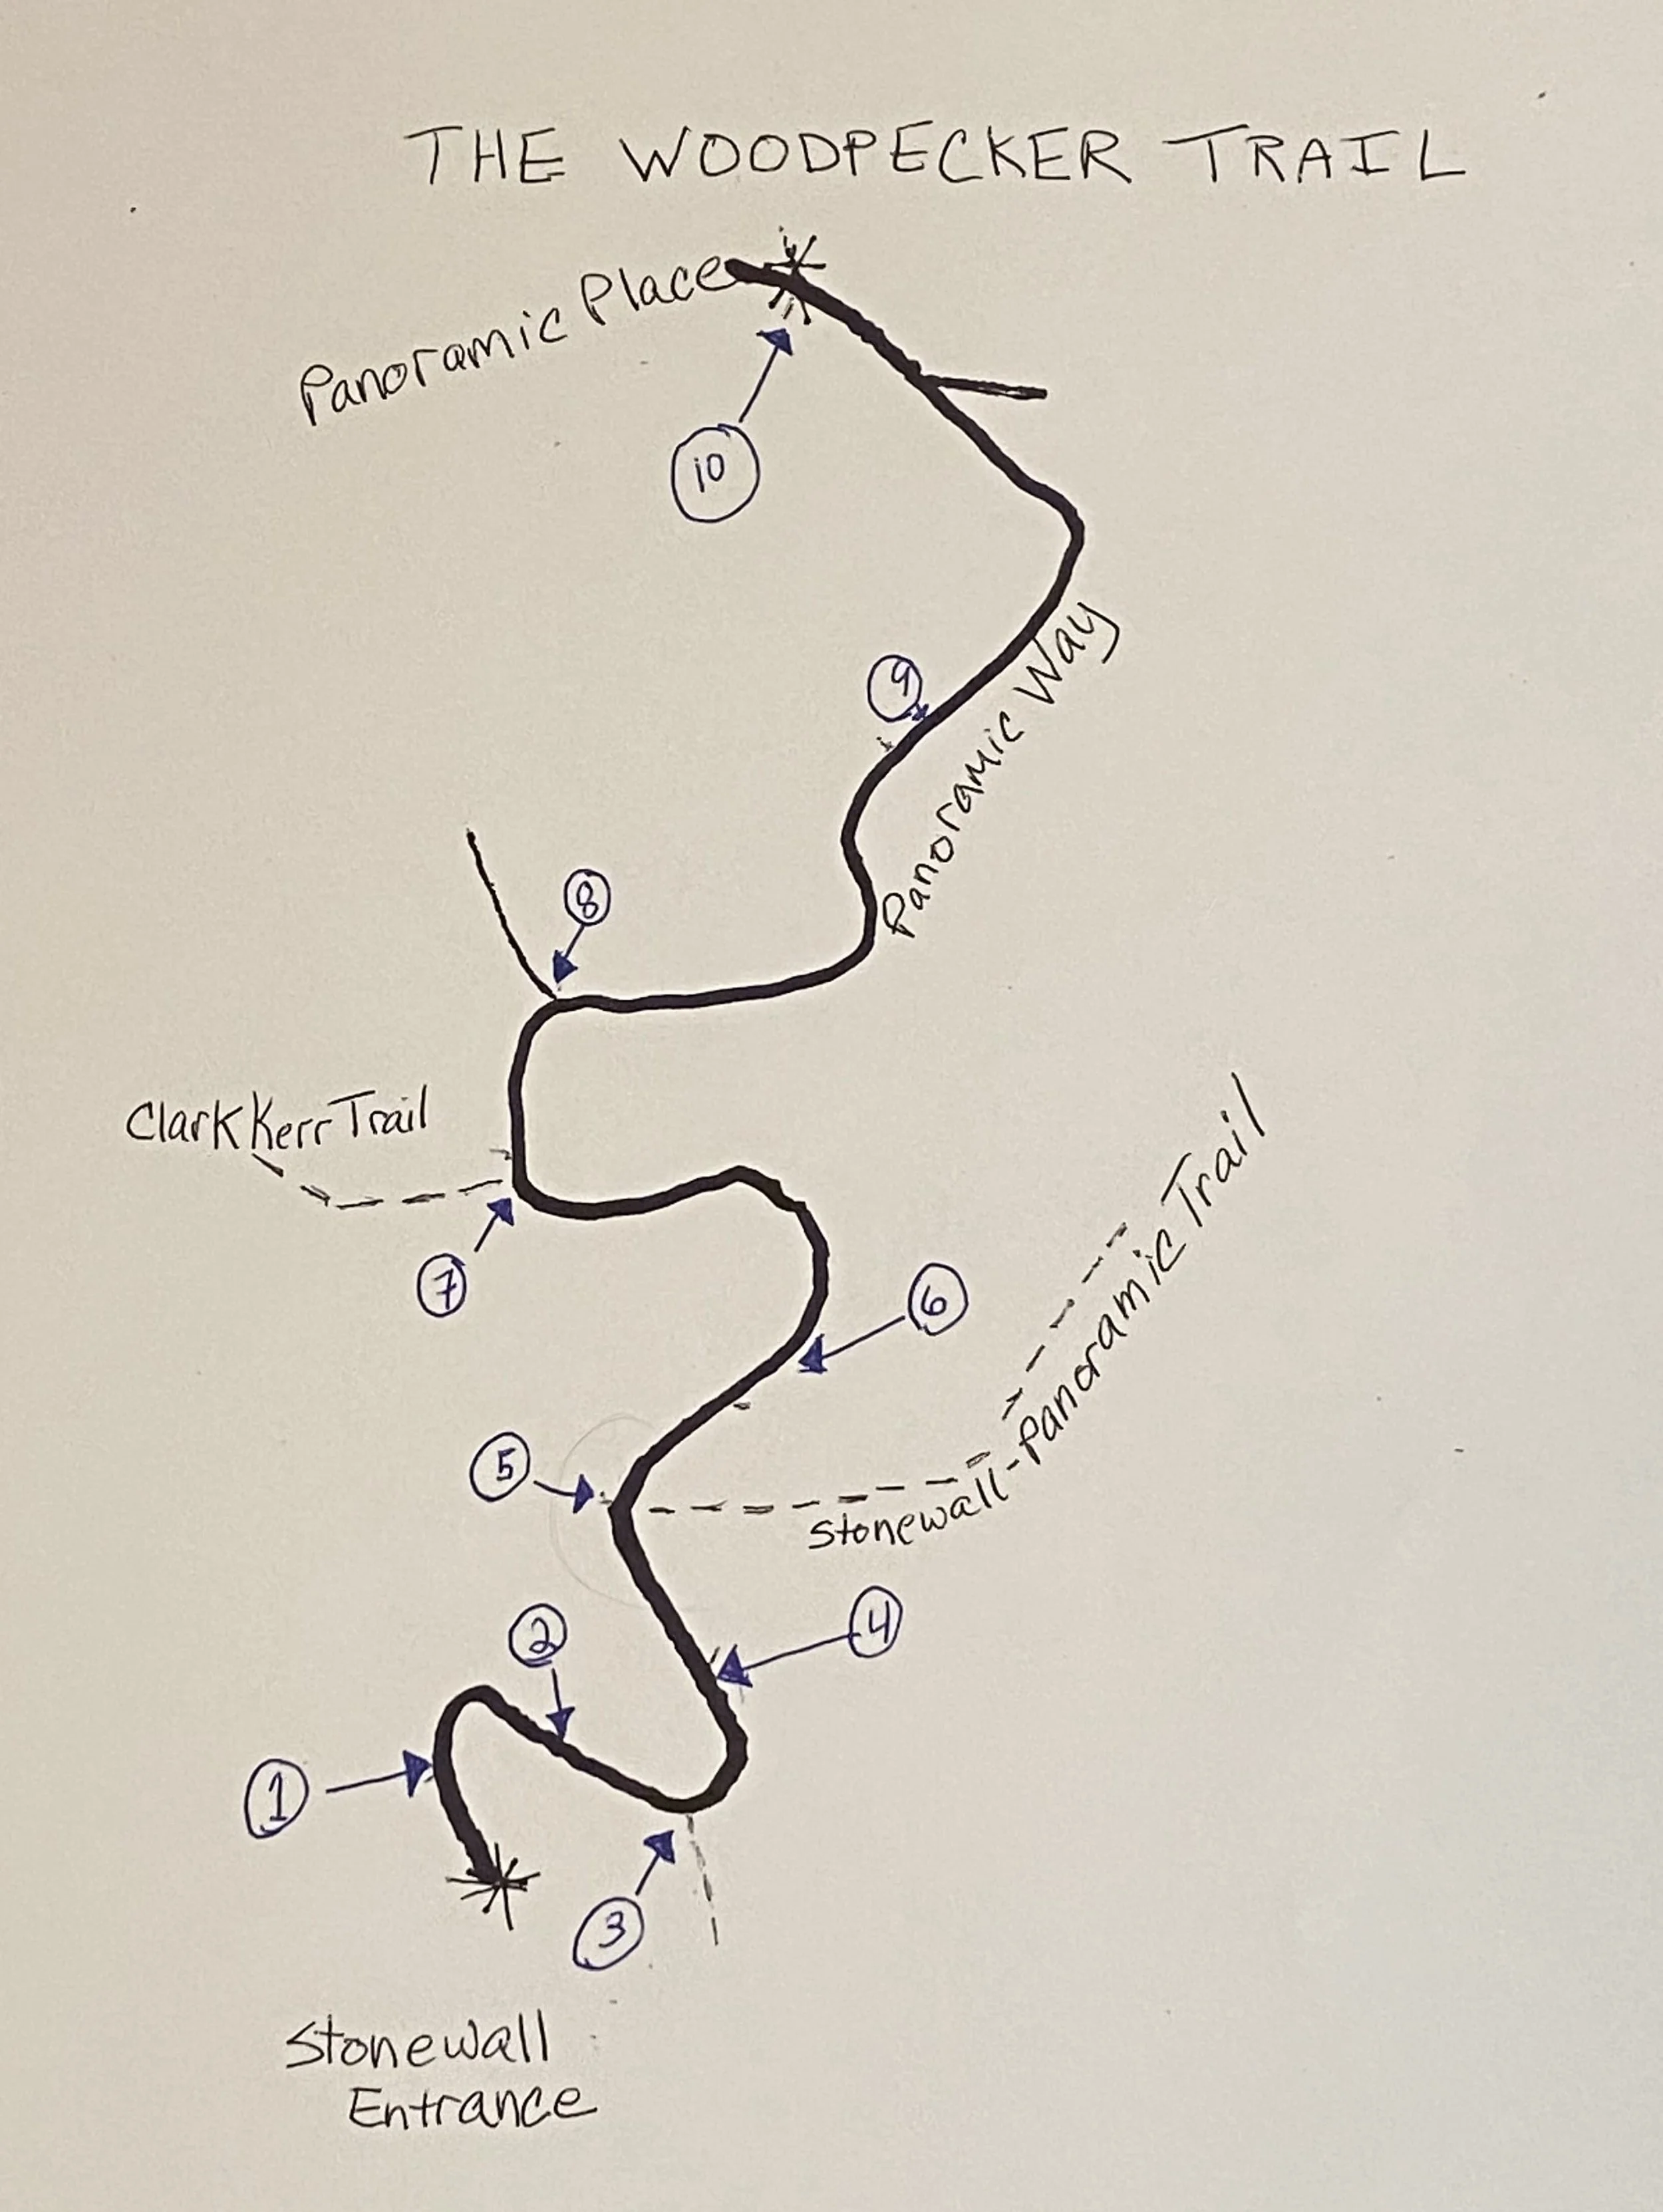 THE WOODPECKER TRAIL
Panoramic Place
10
9
Panoramic Way
8
Clark Kerr Trail
7
6
Stonewall-Panoramic Trail
5
4
2
1
3
Stonewall
Entrance